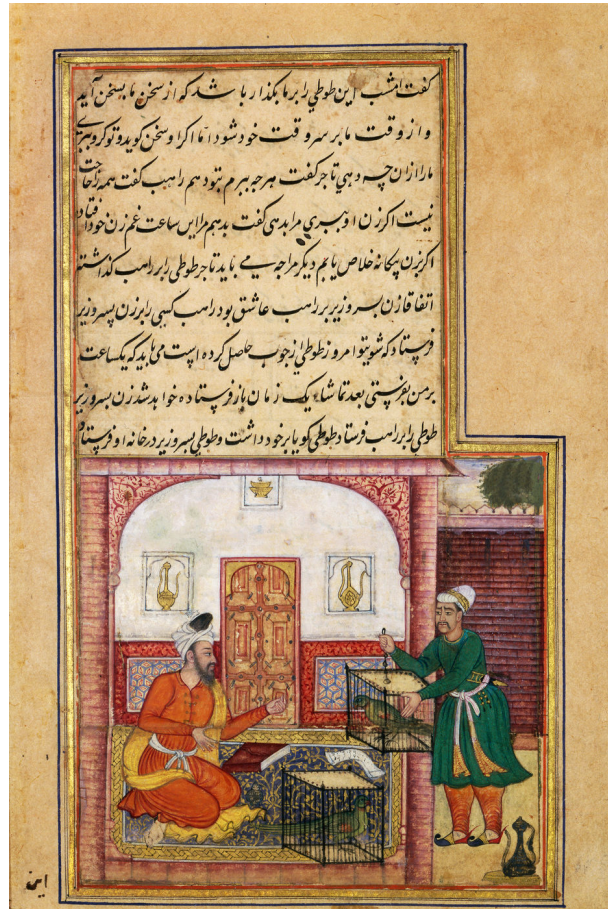 کفت امشب این طوطي را بر ما بکذار باشد که از سخن ما بسخن آید
و از وقت ما بر سر وقت خود شود اما اکر او سخن کوید و تو کرو بری
مارا ازان چه دهي تاجر کفت هرچه ببرم بتو دهم راهب کفت همه را حاجت
نیست اکر زن او ببري مرا بدهی کفت بدهم مرا این ساعت غم زن خود افتاد
اکر بزن بیکانه خلاص یابم دیکر مرا چه می باید تاجر طوطی را بر راهب کذاشت
اتفاقا زن پسر وزیر بر راهب عاشق بود راهب کسی را بر زن پسر وزیر
فرستاد که شوی تو امروز طوطی از چوب حاصل کرده است می باید که یکساعت
بر من بفرستی بعد تماشا یک زمان باز فرستاده خواهد شد زن پسر وزیر
طوطي را بر راهب فرستاد طوطی کویا بر خود داشت و طوطی پسر وزیر در خانه او فرستاد
این